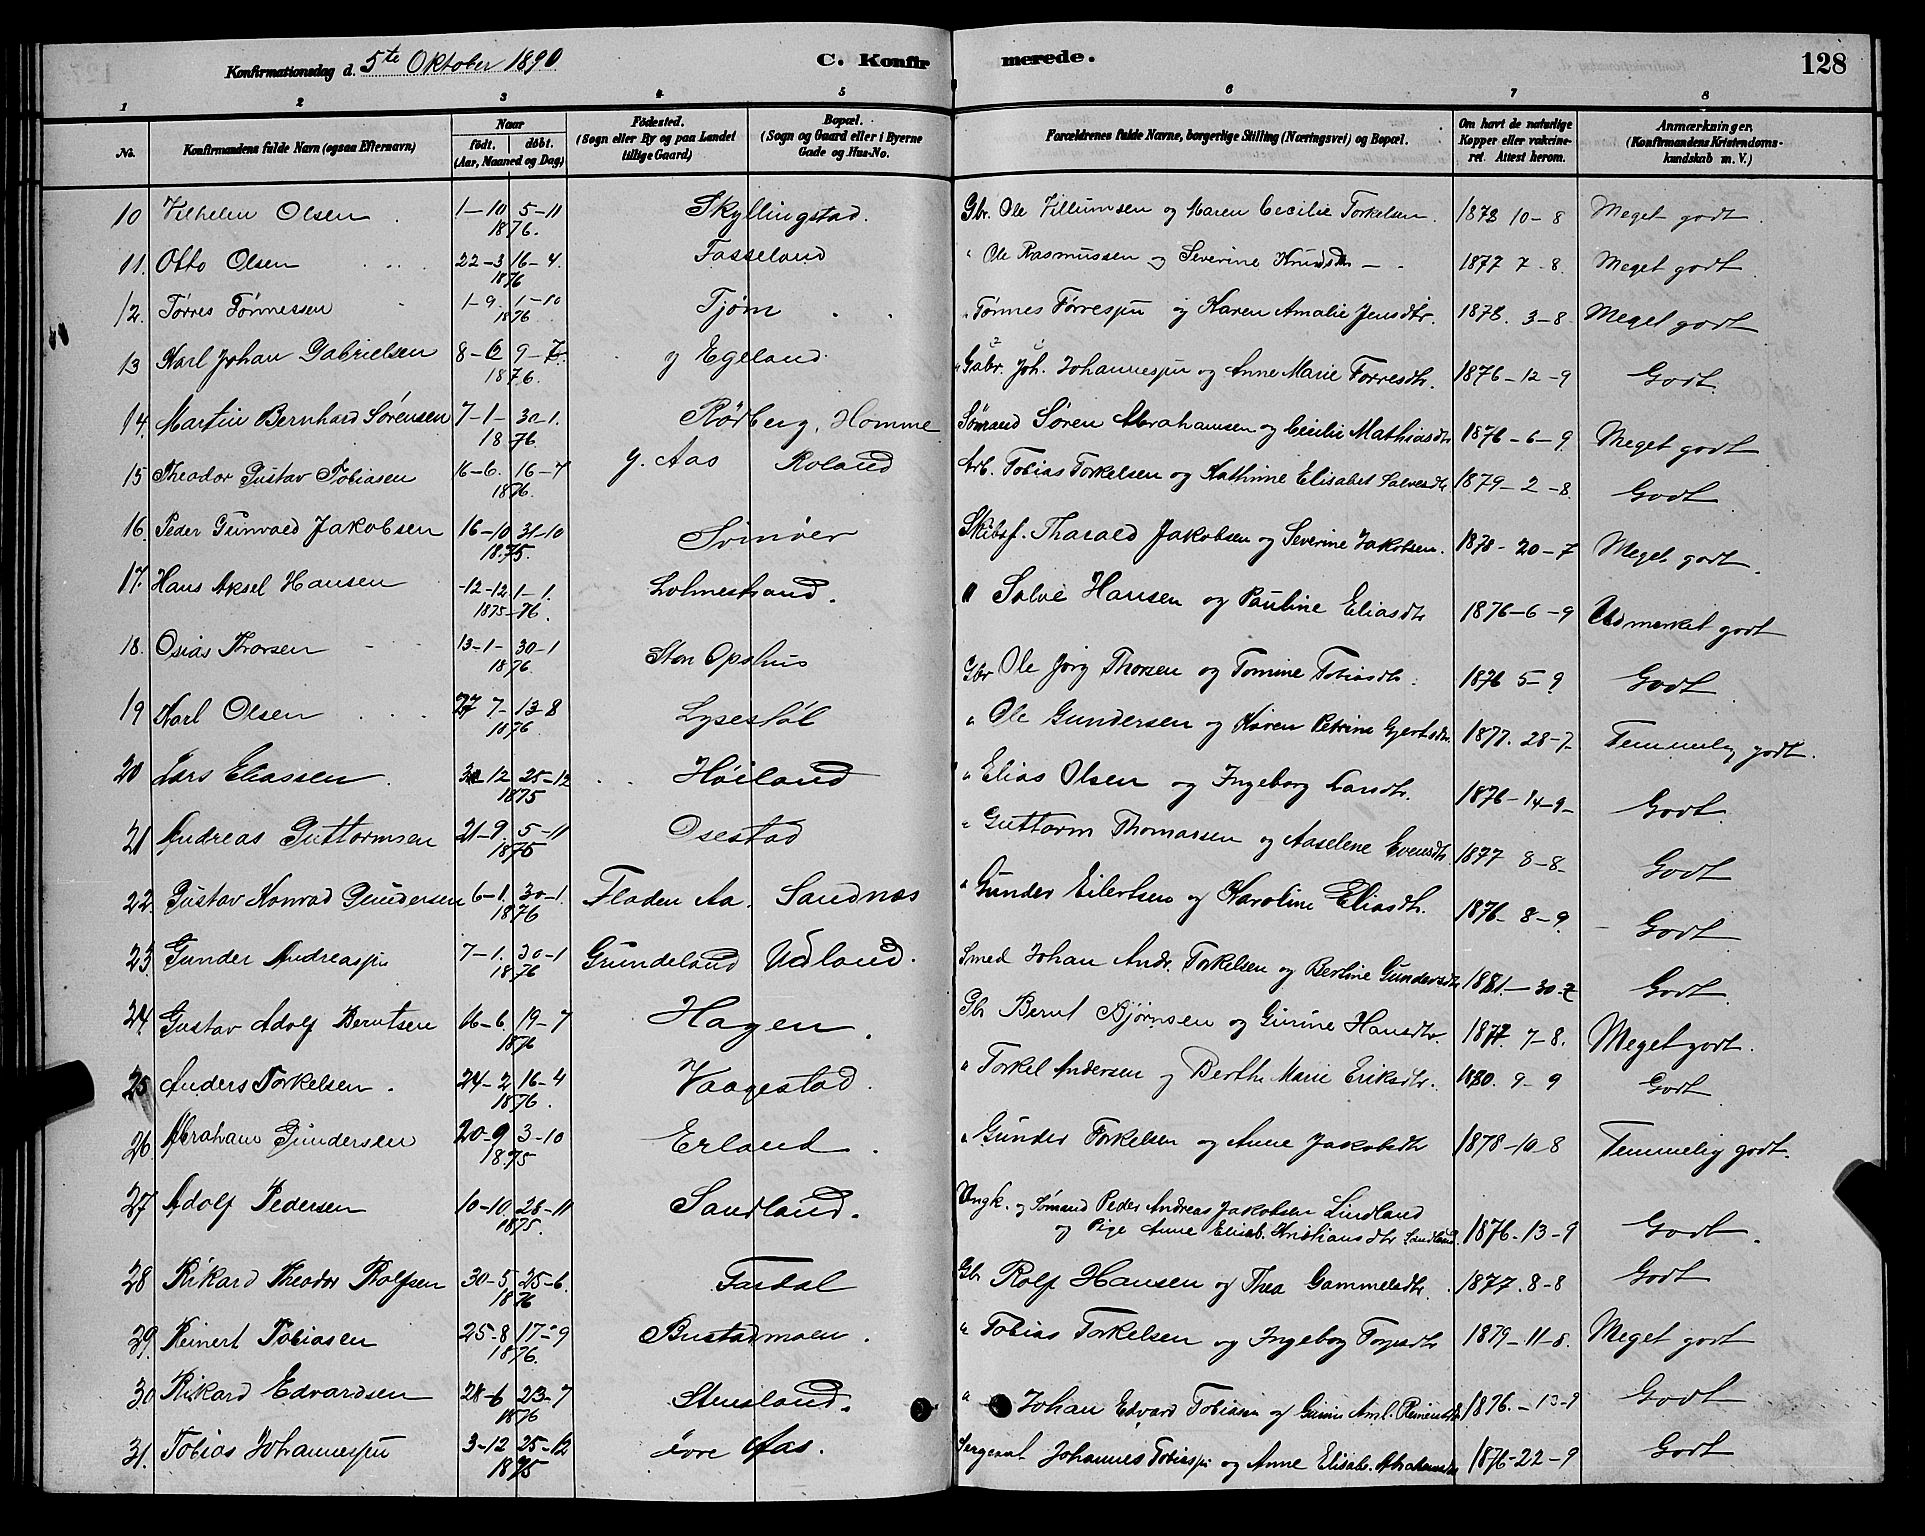 Konfirmationsdag d. 5te Oktober 1890 C. Konfirmerede. 128
1 2 3 4 5 6 7 8
No. Konfirmandens fulde Navn (ogsaa Efternavn) Naar født. døbt. (Aar, Maaned og Dag) Fødested. (Sogn eller By og paa Landet tillige Gaard) Bopæl. (Sogn og Gaard eller i Byerne Gade og Hus-No. Forældrenes fulde Navne, borgerlige Stilling (Næringsvei) og Bopæl. Om havt de naturlige Kopper eller vakcineret. Attest herom. Anmærkninger (Konfirmandens Kristendomskundskab m. V.)
10 Vilhelm Olsen 1–10 5–11 1876. Skyllingstad. Gbr. Ole Villumsen og Maren Cecilie Torkelsen. 1878 10–8 Meget godt
11. Otto Olsen 22–3 16–4. 1876 Fasseland " Ole Rasmussen og Severine Knudsdtr – 1877 7–8. Meget godt.
12. Tørres Tønnessen 1–9. 1–10 1876. Tjøm " Tønnes Tørresjn og Karen Amalie Jensdtr. 1878. 3–8. Meget godt
13 Karl Johan Gabrielsen 8–6 9–7. 1876. y Egeland. " Gabr. Joh. Johannesjn og Anne Marie Torresdtr. 1876–12–9 Godt
14. Martin Bernhard Sørensen 7–1– 30–1. 1876 Rødberg, Homme Sømand Søren Abrahamsen og Cecilie Mathiasdtr 1876–6–9 Meget godt
15 Theodor Gustav Tobiasen 16–6. 16–7 1876. y. Aas Roland Arb. Tobias Torkelsen og Kathrine Elisabet Salvesdtr 1879–2–8. Godt
16. Peder Gunvald Jakobsen 16–10 31–10 1875. Svinøer Skibsf. Tharald Jakobsen og Severine Jakobsen. 1878–20–7 Meget godt.
17. Hans Aksel Hansen 12–12 1–1. 1875–76. Holmestrand. " Salve Hansen og Pauline Eliasdtr 1876–6–9 Udmerket godt
18. Osias Thorsen 13–1– 30–1 1876. Sten Opshus Gbr Ole Jørg Thorsen og Tomine Tobiasdtr. 1876 5–9 Godt
19 Karl Olsen 27 7– 13–8 1876. Lysestøl " Ole Gundersen og Karen Petrine Gjertsdtr. 1877. 28–7– Temmelig godt.
20 Lars Eliassen. 12 25–12 1875 Høiland " Elias Olsen og Ingeborg Larsdtr. 1876–14–9– Godt
21 Andreas Guttormsen 21–9. 5–11 1875 Osestad " Guttorm Thomassen og Aaselene Evensdtr 1877 8–8– Godt
22. Gustav Konrad Gundersen 6–1. 30–1. 1876 Fladen Aa. Sandnæs " Gunder Eilertsen og Karoline Eliasdtr. 1876–8–9. Godt
23 Gunder Andreasjn 7–1. 30–1 1876 Grundeland Udland. Smed Johan Andr. Torkelsen og Bertine Gundersdtr 1881.–30–7 Godt.
24. Gustav Adolf Berntsen 16–6. 19–7 1876 Hagen. Gbr Bernt Bjørnsen og Gurine Hansdtr. 1877. 7–8. Meget godt.
25 Anders Torkelsen. 24–2 16–4 1876. Vaagestad. " Torkel Andersen og Berthe Marie Eriksdtr. 1880. 9–9 Godt
26. Abraham Gundersen 20–9 3–10 1875 Erland. " Gunder Torkelsen og Anne Jakobsdtr 1878–10–8 Temmelig godt.
27 Adolf Pedersen 10–10 28–11 1875. Sandland. Ungk. og Sømand Peder Andreas Jakobsen Lindland
og Pige Anne Elisab. Kristiansdtr Sandland. 1876–13–9 Godt.
28 Rikard Theodor Rolfsen 30–5 25–6. 1876 Fardal Gbr Rolf Hansen og Thea Gammelsdtr. 1877. 8–8 Godt
29. Reinert Tobiasen 25–8 17–9 1876. Bustadmoen. " Tobias Torkelsen og Ingeborg 1879–11–8. Meget godt
30 Rikard Edvardsen 28–6 23–7 1876 Stensland. " Johan Edvard Tobiasen og 1876.–13–9 Godt
31. Tobias Johannesjn 3–12 25–12 1875 øvre Aas. Sergeant Johannes Tobiasjn og Anne Elisab. Abrahamsdtr 1876–22–9 Godt